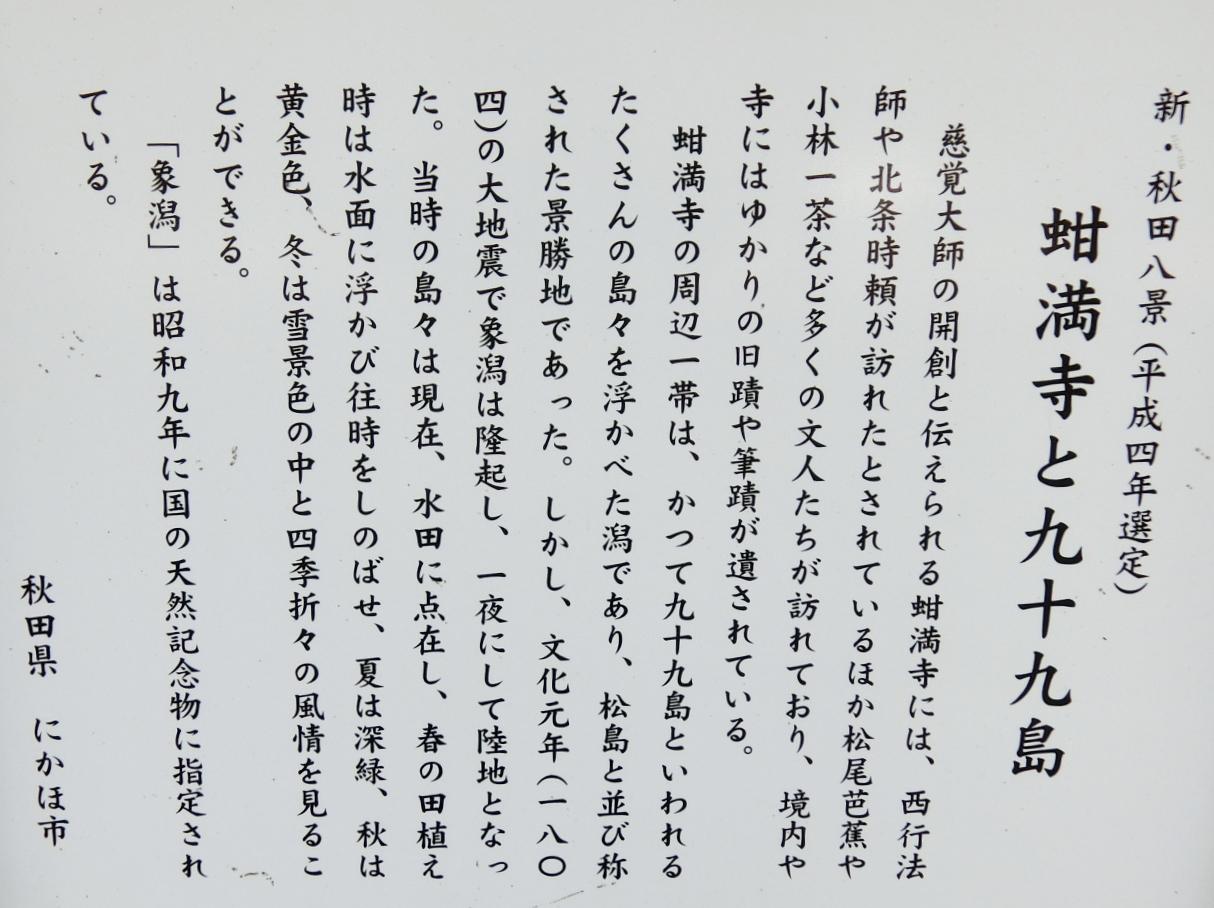 新・秋田八景（平成四年選定）
蚶満寺と九十九島
慈覚大師の開創と伝えられる蚶満寺には、西行法
師や北条時頼が訪れたとされているほか松尾芭蕉や
小林一茶など多くの文人たちが訪れており、境内や
寺にはゆかりの旧蹟や筆蹟が遺されている。
蚶満寺の周辺一帯は、かつて九十九島といわれる
たくさんの島々を浮かべた潟であり、松島と並び称
された景勝地であった。しかし、文化元年（一八〇
四）の大地震で象潟は隆起し、一夜にして陸地となっ
た。当時の島々は現在、水田に点在し、春の田植え
時は水面に浮かび往時をしのばせ、夏は深緑、秋は
黄金色、冬は雪景色の中と四季折々の風情を見るこ
とができる。
「象潟」は昭和九年に国の天然記念物に指定され
ている。
秋田県　にかほ市